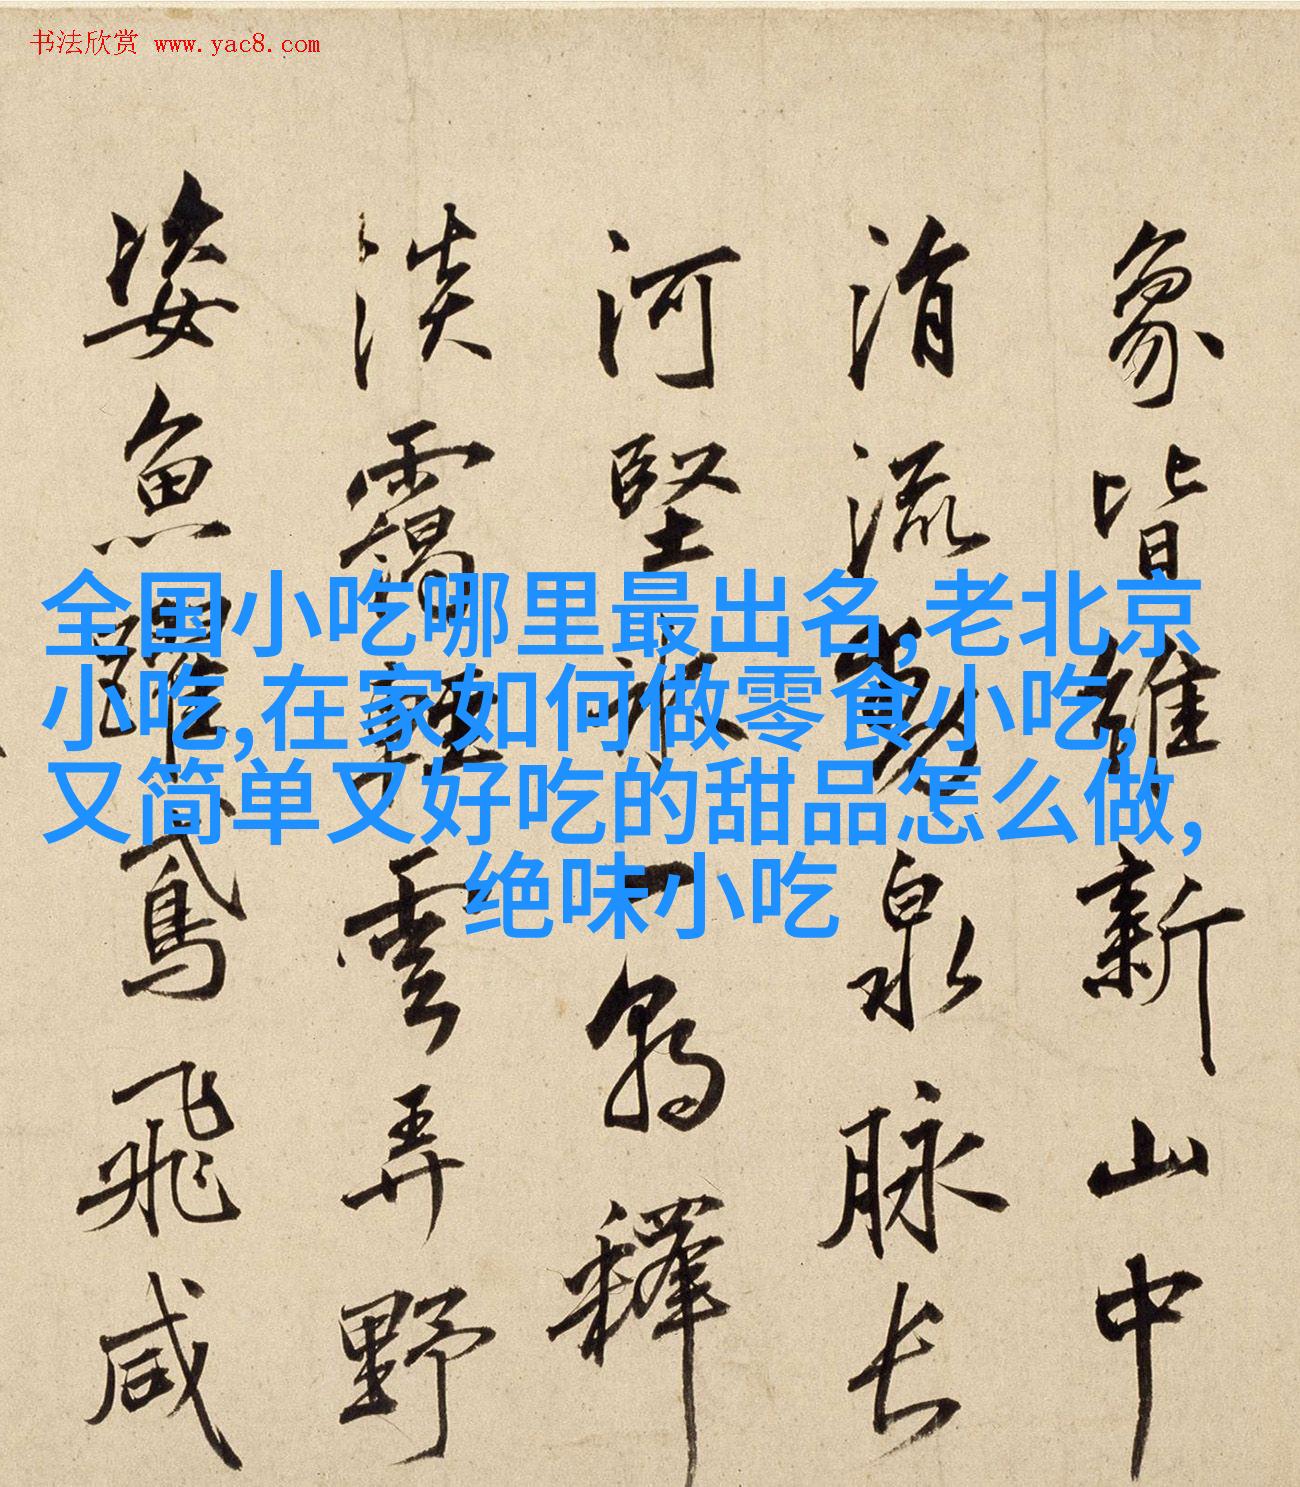 书法欣赏 www.yac8.com
全国小吃哪里最出名,老北京
小吃,在家如何做零食小吃,
又简单又好吃的甜品怎么做,
绝味小吃
象皆維新山中
涓流動泉脉長
河堅冰一釋
淡靄輕雲弄野
姿魚躍鳶飛咸